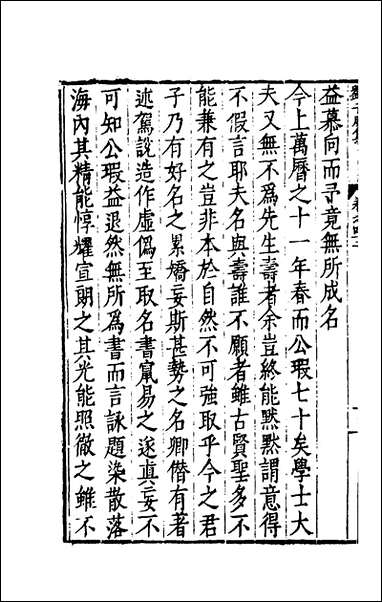 益慕向而予竟無所成名
今上萬曆之十一年春而公瑕七十矣學士大
夫又無不爲先生壽者余豈終能黙黙謂意得
不假言耶夫名與壽誰不願者雖古賢聖多不
能兼有之豈非本於自然不可強取乎今之君
子乃有好名之累嬌妄斯甚勢之名卿僭有著
述駕說造作虛僞至取名書竄易之遂真妄不
可知公瑕益退然無所爲書而言詠題染散落
海內其精能惇耀宣朗之其光能照徹之雖不